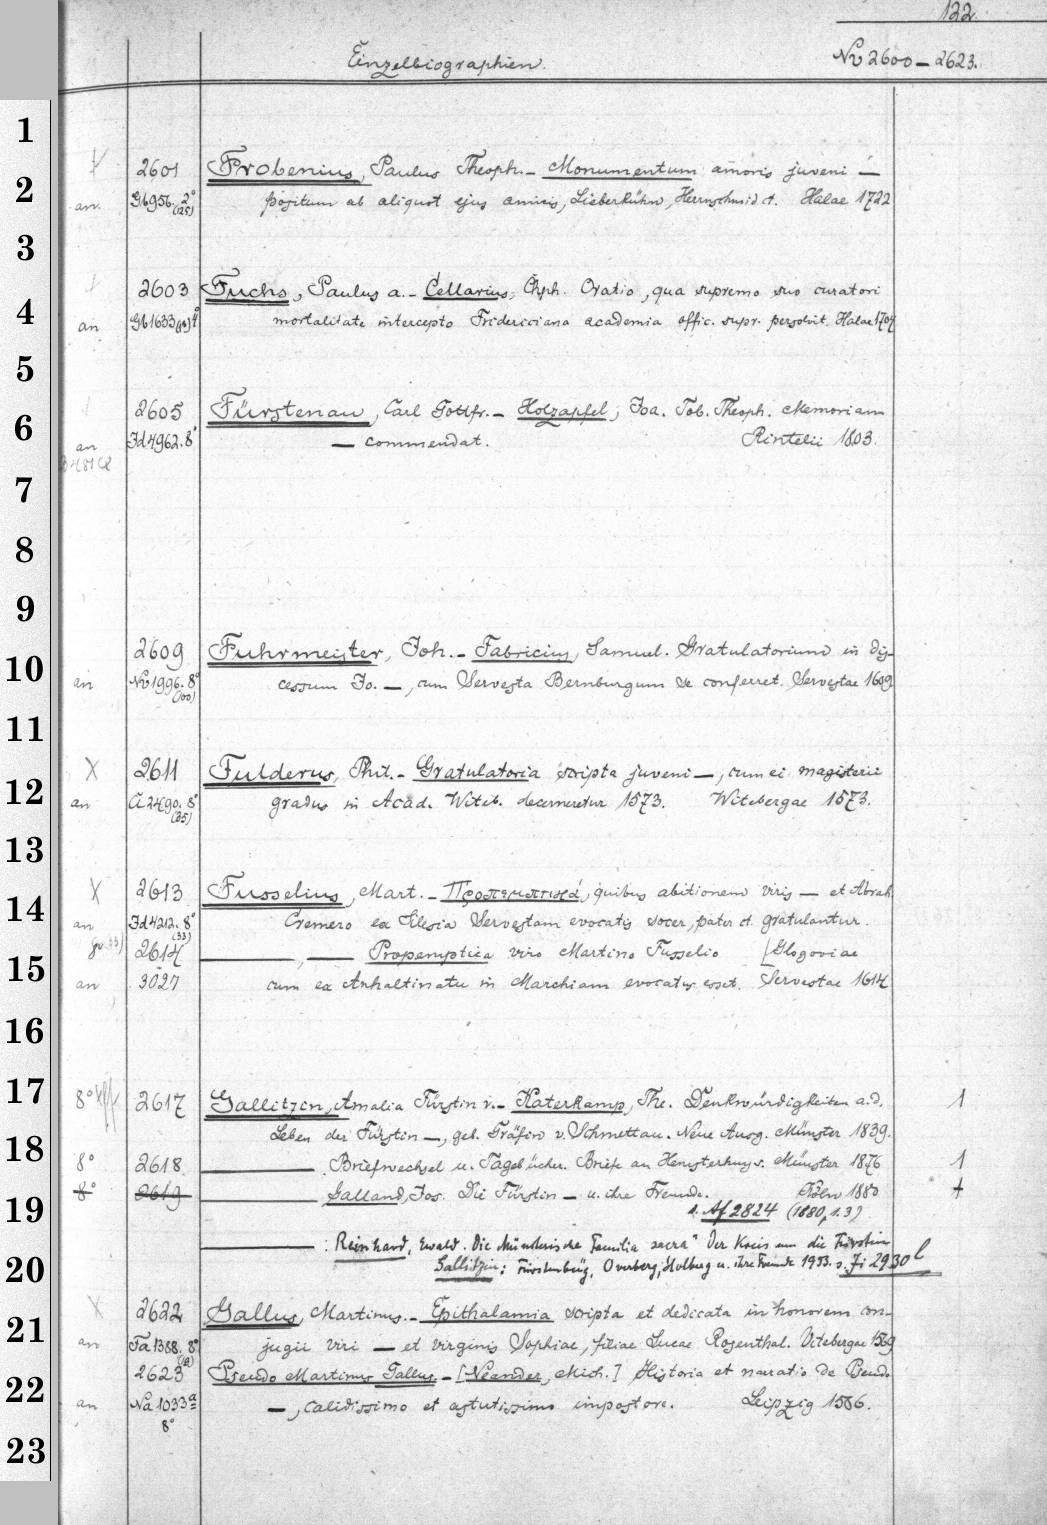 122.
Einzelbiographien. Nr 2600 — 2623.
1
2601 Frobenius, Paulus Theoph. — Monumentum amoris juveni —
2
an. Gb956. 2° (25) positum ab aliquot ejus amicis, Lieberkühn, Herrnschmid ct. Halae 1722
3
2603 Fuchs, Paulus a. — Cellarius, Chph. Oratio, qua supremo suo curatori
4
an Gb1633 4° mortalitate intercepto Fridericiana academia offic. supr. persolvit. Halae 1704
5
2605 Fürstenau, Carl Gottfr. — Holzapfel, Joa. Tob. Theoph. Memoriam
6
an Id4962. 8° — commendat. Rintelii 1803.
7
8
9
2609 Fuhrmeister, Joh. — Fabricius, Samuel. Gratulatorium in dis-
10
an Nv1996. 8° (100) cessum Jo. —, cum Servesta Bernburgum se conferret. Servestae 1609
11
X 2611 Fulderus, Phil. — Gratulatoria scripta juveni —, cum ei magisterii
12
an Ci 2490. 8° (35) gradus in Acad. Witeb. decerneretur 1573. Witebergae 1573.
13
X 2613 Fusselius, Mart. — Προπεμπτικά, quibus abitionem viris — et Abrah.
14
an Id4212. 8° (33) Cremero ex Silesia Servestam evocatis socer, pater ct. gratulantur.
2614 —, — Propemptica viro Martino Fusselio [Glogoviae
15
an 3027 cum ex Anhaltinatu in Marchiam evocatus esset. Servestae 1614
16
17
8° 2617 Gallitzin, Amalia Fürstin v. — Katerkamp, The. Denkwürdigkeiten a.d. 1
18
Leben der Fürstin —, geb. Gräfin v. Schmettau. Neue Ausg. Münster 1839.
8° 2618. — Briefwechsel u. Tagebücher. Briefe an Hemsterhuys. Münster 1876 1
19
8° 2619 — Galland, Jos. Die Fürstin — u. ihre Freunde. Köln 1880 1
s. Af 2824 (1880, 1.3)
— : Reinhard, Ewald. Die Münsterische "Familia sacra" Der Kreis um die Fürstin
20
Gallitzin: Fürstenberg, Overberg, Stolberg u. ihre Freunde 1953. s. Ji 2930 l
X 2622 Gallus, Martinus. — Epithalamia scripta et dedicata in honorem con-
21
an Ta1388. 8° jugii viri — et virginis Sophiae, filiae Lucae Rosenthal. Witebergae 1569
2623 Pseudo Martinus Gallus. — [Neander, Mich.] Historia et narratio de Pseudo
22
an Na 1033a 8° —, callidissimo et astutissimo impostore. Leipzig 1586.
23